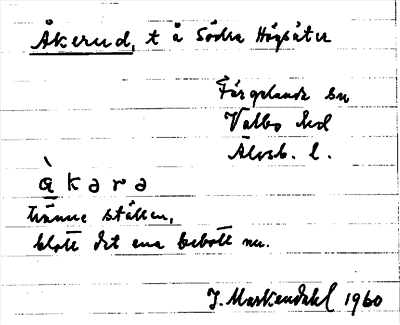 Åkerud, t å Södra Högsäter
Färgelanda sn
Valbo hd
Älvsb. l.
àkara
tvänne ställen,
blott det ena bebott nu.
J. Markendahl 1960